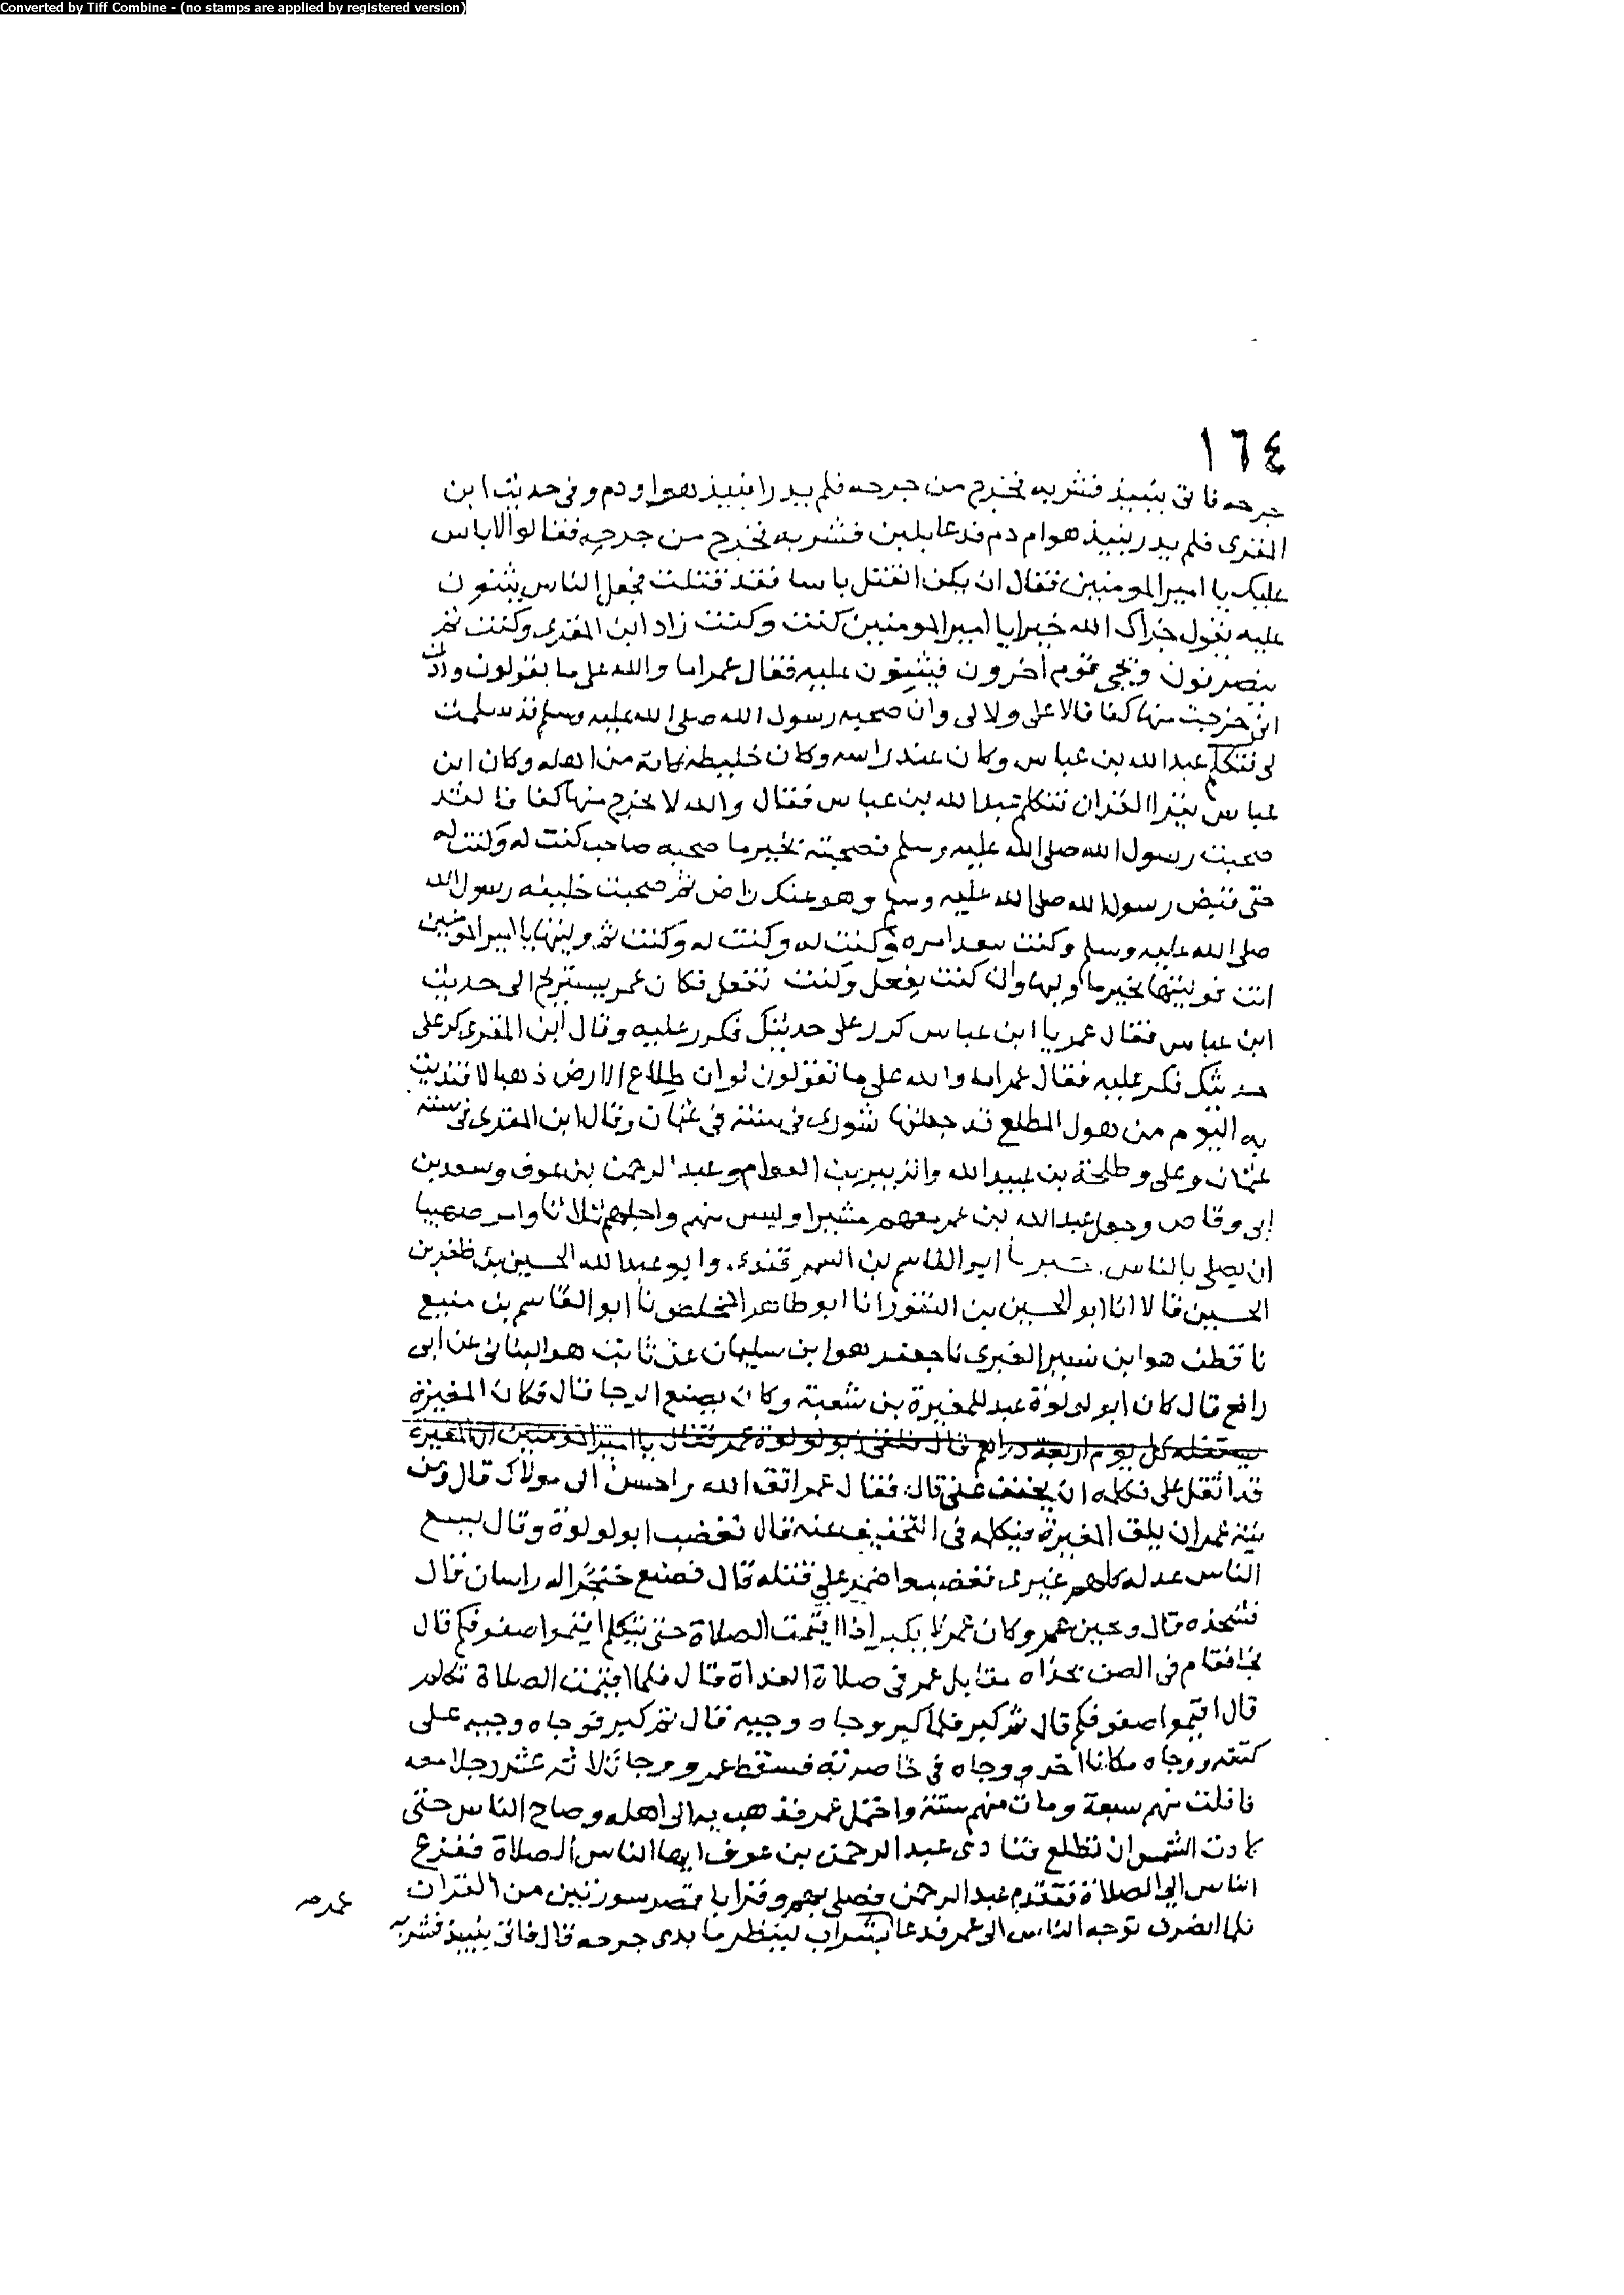 Converted by Tiff Combine - (no stamps are applied by registered version)
١٦٤
جرحه فاتى بنبيذ فشربه فخرج من جرحه فلم يدر انبيذ هو او دم وفى حديث ابن
المقرى فلم يدر نبيذ هو ام دم فدعا بلبن فشربه فخرج من جرحه فقالوا لا باس
عليك يا امير المومنين فقال ان يكن القتل باسا فقد قتلت فجعل الناس يثنون
عليه يقول جزاك الله خيرا يا امير المومنين كنت وكنت زاد ابن المقرى وكنت ثم
ينصرفون ويجى قوم اخرون فيثنون عليه فقال عمر اما والله على ما يقولون وددت
انى خرجت منها كفافا لا على ولا لى وان صحبه رسول الله صلى الله عليه وسلم قد سلمت
لى فتكلم عبد الله بن عباس وكان عند راسه وكان خليطه كانه من اهله وكان ابن
عباس يقرا القران فتكلم عبد الله بن عباس فقال والله لا يخرج منها كفافا لقد
صحبت رسول الله صلى الله عليه وسلم فصحبته بخير ما صحبه صاحب كنت له وكنت له
حتى قبض رسول الله صلى الله عليه وسلم وهو عنك راض ثم صحبت خليفه رسول الله
صلى الله عليه وسلم وكنت سعد امره وكنت له وكنت له وكنت ثم وليتها يا امير المومنين
انت فوليتها بخير ما وليها وال كنت يفعل وكنت تفعل فكان عمر يستريح الى حديث
ابن عباس فقال عمر يا ابن عباس كرر على حديثك فكرر عليه وقال ابن المقرى كر على
حديثك فكر عليه فقال عمر اما والله على ما تقولون لو ان طلاع الارض ذهبا لافتديت
به اليوم من هول المطلع قد جعلتها شورى فى ستة فى عثمان وقال ابن المقرى فى ستة
عثمان وعلى وطلحة بن عبيد الله والزبير بن العوام وعبد الرحمن بن عوف وسعد بن
ابى وقاص وجعل عبد الله بن عمر معهم مشيرا وليس منهم واجلهم ثلاثا وامر صهيبا
ان يصلى بالناس ابو القاسم بن السمرقندى وابو عبد الله الحسين بن ظفر بن
الحسين قالا انا ابو الحسين بن النقور انا ابو طاهر المخلص نا ابو القاسم بن منيع
نا قطن هو ابن نسير الغبرى نا جعفر هو ابن سليمان عن ثابت هو البنانى عن ابى
رافع قال كان ابو لولوة عبد للمغيرة بن شعبة وكان يصنع الرحا قال فكان المغيرة
يستغله كل يوم اربعة دراهم قال فلقى ابو لولوة عمر فقال يا امير المومنين ان المغيرة
قد اثقل على فكلمه ان يخفف عنى قال فقال عمر اتق الله واحسن الى مولاك قال ومن
نية عمر ان يلق المغيرة فيكلمه فى التخفيف عنه قال فغضب ابو لولوة وقال يسع
الناس عدله كلهم غيرى فغضب واضمر على قتله قال فصنع خنجرا له راسان قال
فشحذه قال وعمر وكان عمر لا يكبر اذا اقيمت الصلاة حتى يتكلم اقيموا صفوفكم قال
فجا فقام فى الصف بحذاه مقابل عمر فى صلاة الغداة قال فلما اقيمت الصلاة تكلم
قال اقيموا صفوفكم قال ثم كبر فلما كبر وجاه وجيه قال ثم كبر فوجاه وجيه على
كتفه ووجاه مكانا اخر ووجاه فى خاصرته فسقط عمر ووجا ثلاثه عشر رجلا معه
فافلت منهم سبعة ومات منهم ستة واحتمل عمر فذهب به الى اهله وصاح الناس حتى
كادت الشمس ان تطلع فنادى عبد الرحمن بن عوف ايها الناس الصلاة ففزع
الناس الى الصلاة فتقدم عبد الرحمن فصلى بهم وقرا باقصر سورتين من القران
فلما انصرف توجه الناس الى عمر فدعا بشراب لينظر ما مدى جرحه قال فاتى بنبيذ فشربه